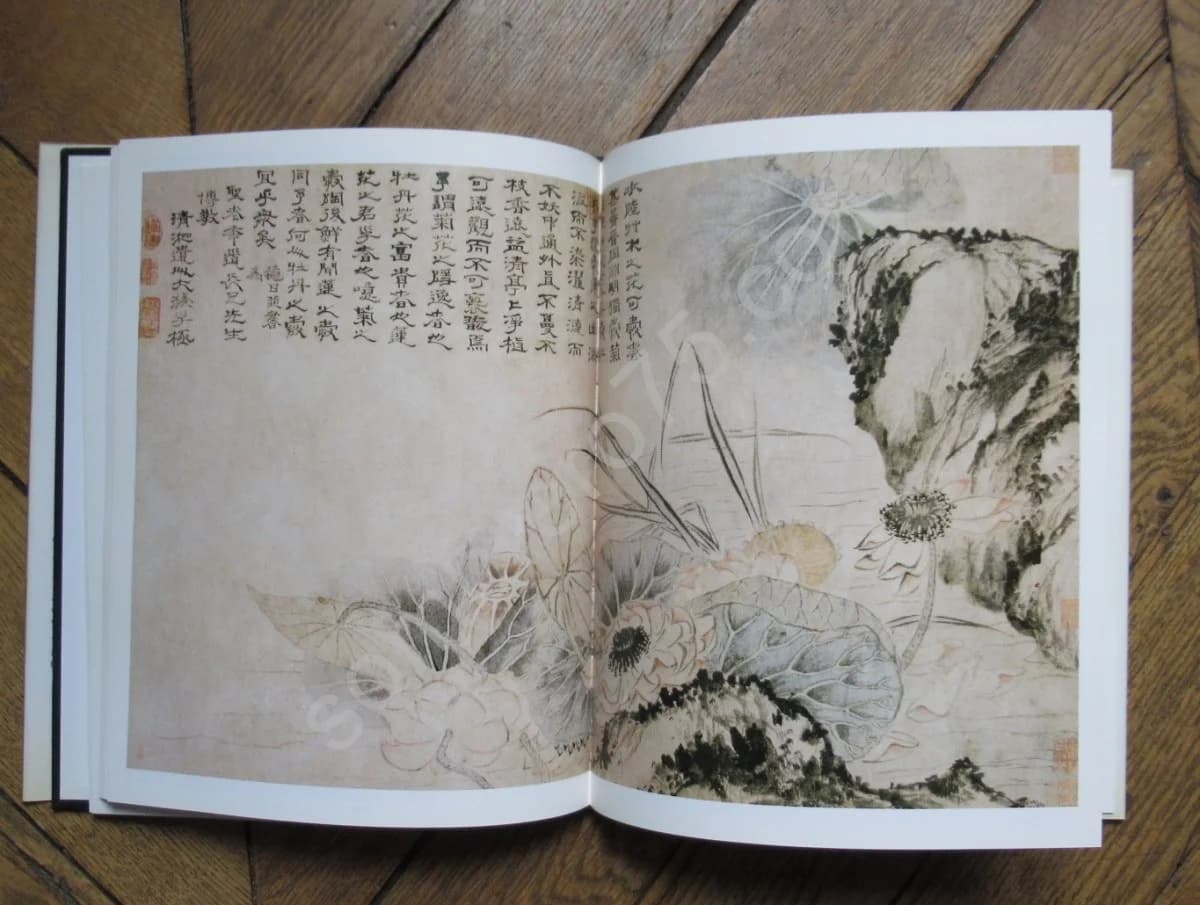 水陸艸木之花可愛者
蕃晉陶淵明獨愛菊
不染濯清漣而
不妖中通外直不蔓不
枝香遠益清亭亭淨植
可遠觀而不可褻翫焉
予謂菊花之隱逸者也
牡丹花之富貴者也蓮
花之君子者也噫菊之
愛陶後鮮有聞蓮之愛
同予者何人牡丹之愛
宜乎衆矣
穐日並書
為
道長兄先生
博教
清湘遺人大滌子極